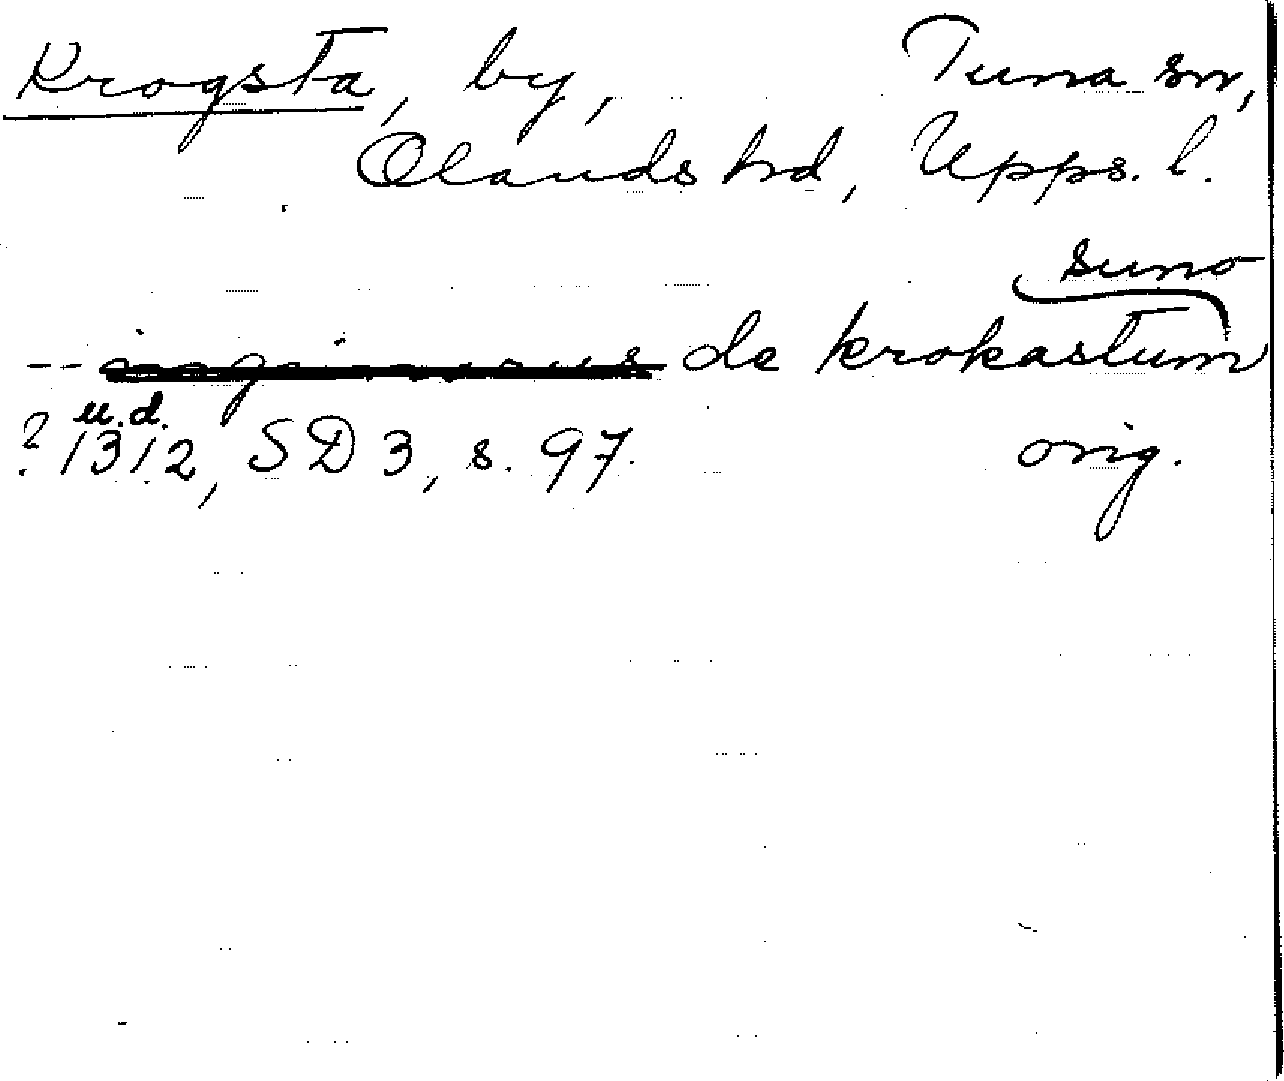 Krogsta, by, Tuna sn,
Olands hd, Upps. l.
suno
-- de krokastum
u.d.
? 1312, SD 3, s. 97. orig.